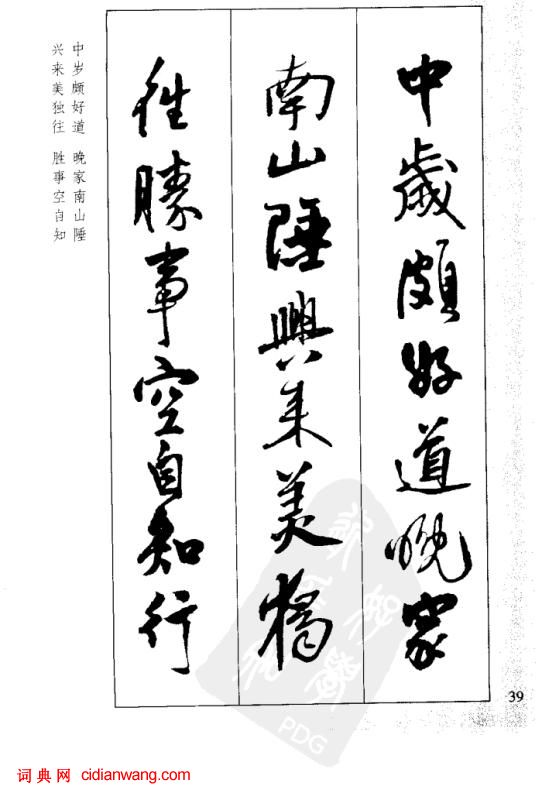 中歲頗好道晚家
南山陲興来美獨
往勝事空自知行
中岁颇好道 晚家南山陲
兴来美独往 胜事空自知
39
PDG
词典网 cidianwang.com